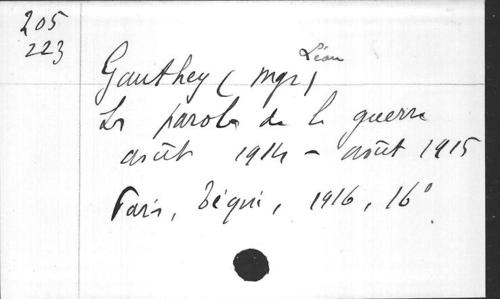 205
223
Léon
Gauthey (Mgr)
La parole de la guerre
août 1914 – août 1915
Paris, Téqui, 1916, 16°